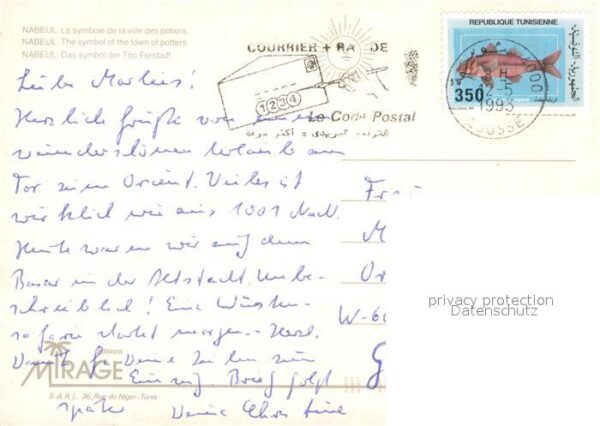 NABEUL. Le symbole de la ville des potiers.
NABEUL. The symbol of the town of potters.
NABEUL. Das symbol der Töp Ferstadt.
COURRIER + RA DE
1 2 3 4
Le Code Postal
REPUBLIQUE TUNISIENNE
350
2-5
1993
SOUSSE
Liebe Marlies!
Herzlich Grüße von einem
wunderschönen Urlaub am
Tor zum Orient. Vieles ist
wirklich wie aus 1001 Nacht.
Heute waren wir auf dem
Basar in der Altstadt. Unbe-
schreiblich! Eine Wüsten-
safari startet morgen -
Herzl.
Ein
Brief folgt
später
Deine Christine
Frau
M
Or
W-6
privacy protection
Datenschutz
Editions
MIRAGE
S.A.R.L. 36, Rue du Niger - Tunis